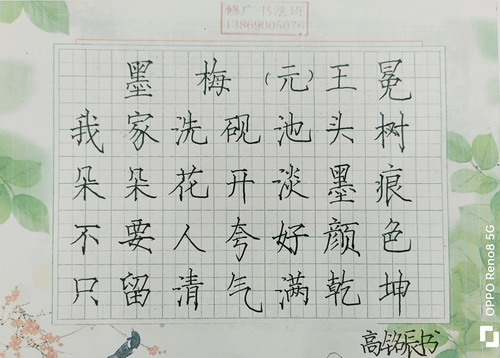 修广书法班
13869005076
墨梅(元)王冕
我家洗砚池头树
朵朵花开淡墨痕
不要人夸好颜色
只留清气满乾坤
高铭辰书
OPPO Reno8 5G